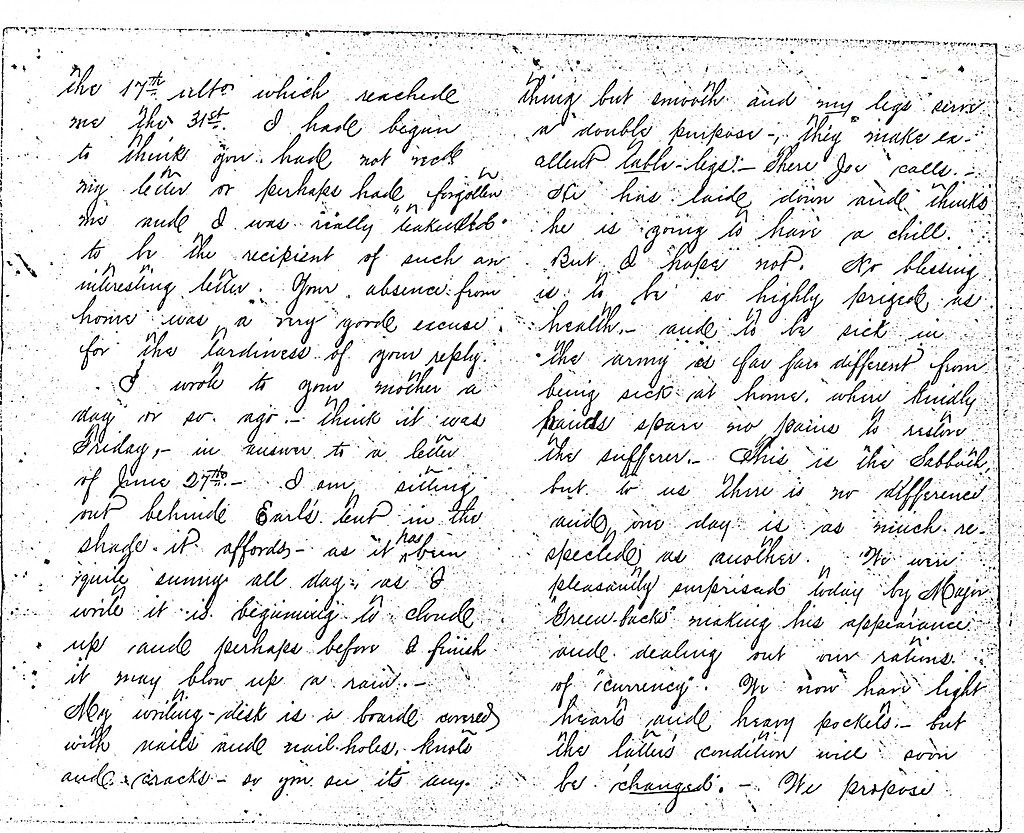 the 17th ulto which reached
me the 31st. I had began
to think you had not recd
my letter or perhaps had forgotten
me and I was really "tickled"
to be the recipient of such an
interesting letter. Your absence from
home was a very good excuse
for the tardiness of your reply.
I wrote to your mother a
day or so ago. - think it was
Friday, - in answer to a letter
of June 27th. - I am sitting
out behind Earl's tent in the
shade it affords - as it has been
quite sunny all day; as I
write it is beginning to cloud
up and perhaps before I finish
it may blow up a rain. -
My writing-desk is a board covered
with nails and nail-holes, knots
and cracks - so you see its any-
thing but smooth and my legs serve
a double purpose -, they make ex-
cellent table-legs. - There Joe calls. -
He has laid down and thinks
he is going to have a chill.
But I hope not. No blessing
is to be so highly prized as
health. - and to be sick in
the army is far far different from
being sick at home, where kindly
hands spare no pains to restore
the sufferer. - This is the Sabbath,
but to us there is no difference
and one day is as much re-
spected as another. We were
pleasantly surprised today by Major
"Green-backs" making his appearance
and dealing out our rations
of "currency". We now have light
hearts and heavy pockets. - but
the latter's condition will soon
be "changed". - We propose